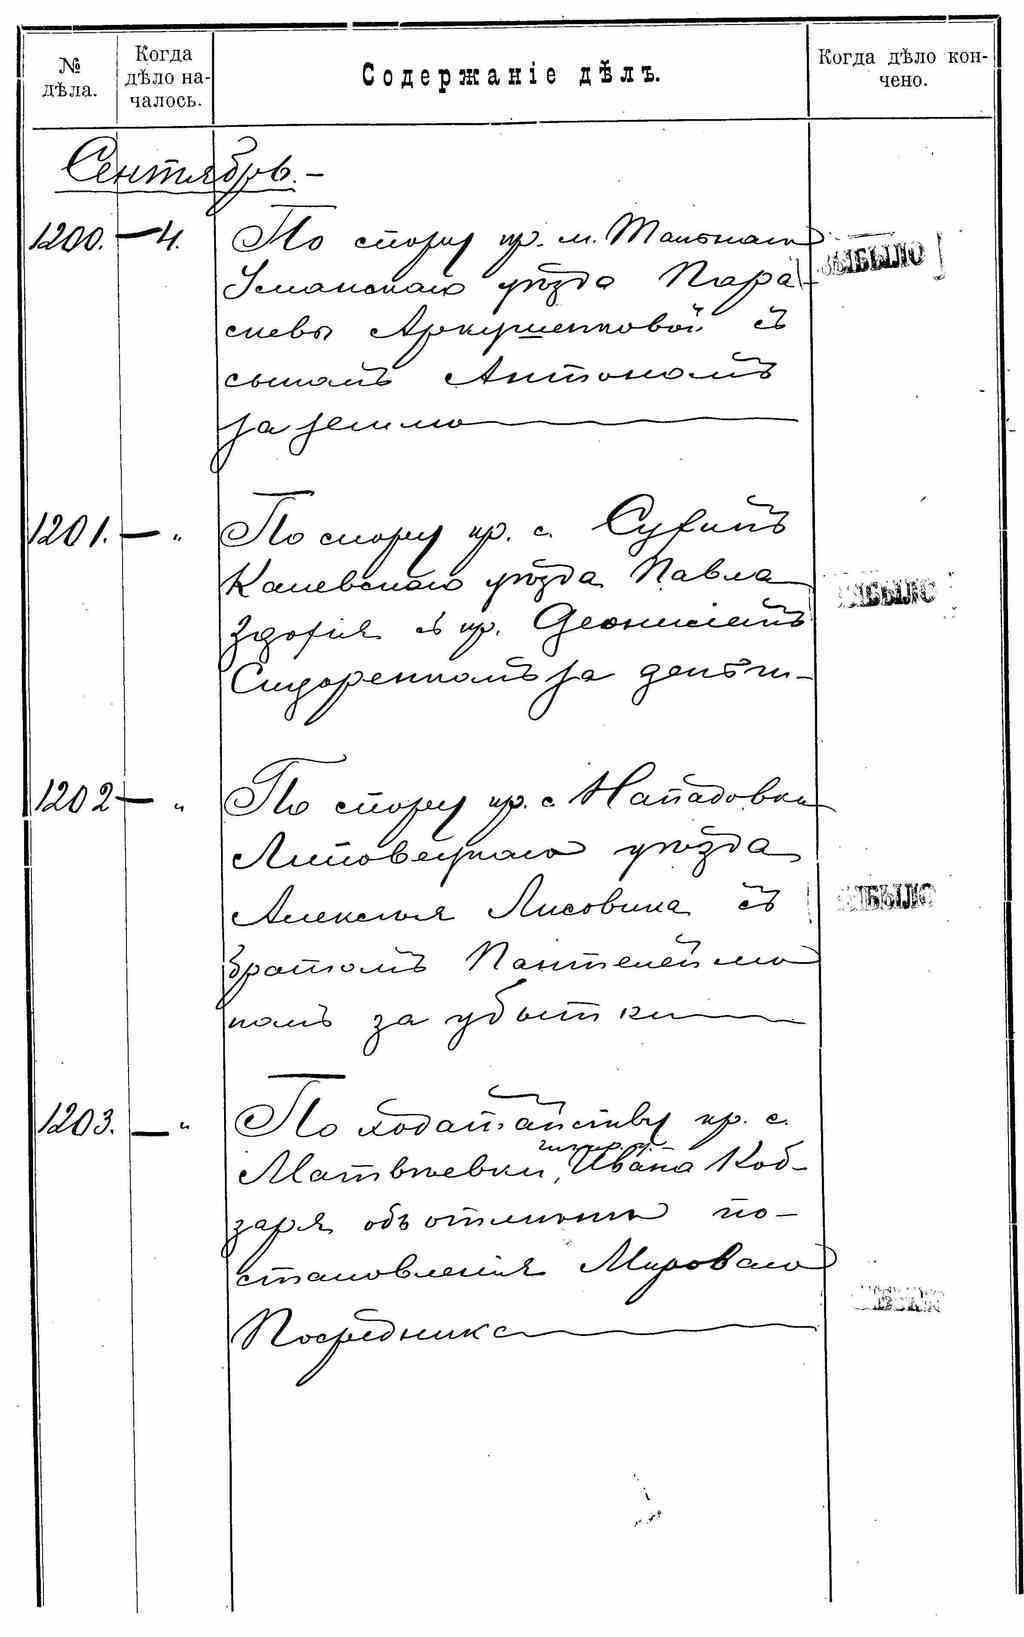 № дѣла.
Когда дѣло на-
чалось.
Содержаніе дѣлъ.
Когда дѣло кон-
чено.
Сентябрь. –
1200. — 4. По спору кр. м. Тальнаго
Уманскаго уѣзда Пара-
скевы Аркушенковой съ
сыномъ Антономъ
за землю
ВЫБЫЛО
1201. — „ По спору кр. с. Сухинъ
Каневскаго уѣзда Павла
Здоρія съ кр. Деонисіемъ
Сидоренкомъ за деньги –
ВЫБЫЛО
1202 — „ По спору кр. с. Нападовки
Липовецкаго уѣзда
Алексѣя Лисовика съ
братомъ Пантелеймо
номъ за убытки
ВЫБЫЛО
1203. — „ По ходатайству кр. с.
Матвѣевки, Ивана Коб-
заря объ отмѣнѣ по-
становленія Мироваго
Посредника